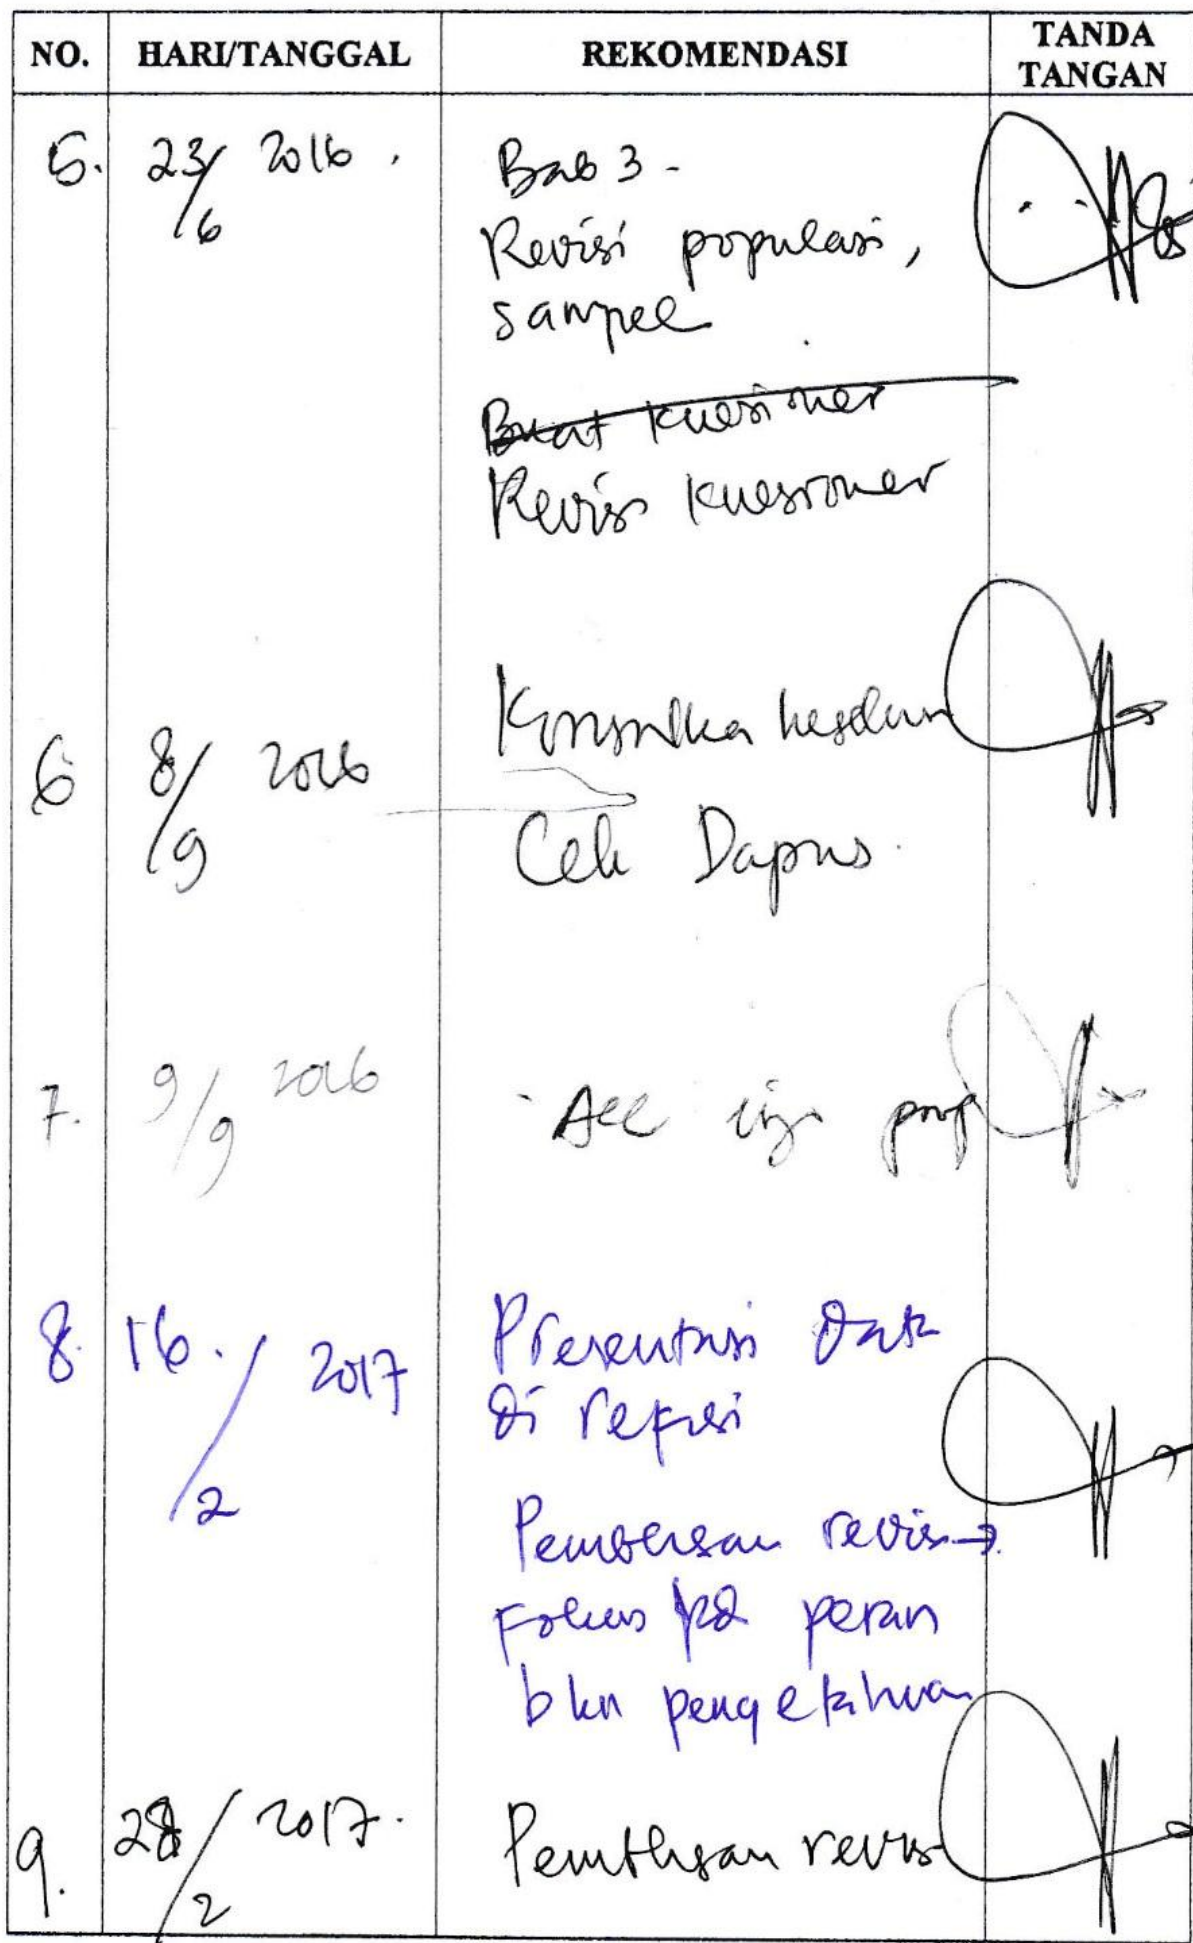 NO. HARI/TANGGAL REKOMENDASI TANDA TANGAN
5. 23/6 2016. Bab 3 -
Revisi populasi,
sampel
Buat kuesioner
Revisi kuesioner
6 8/9 2016
Cek Dapus.
7. 9/9 2016 - Acc uji prop
8. 16/2 2017 Presentasi data
di revisi
Pembahasan revisi →
Fokus pd peran
bkn pengetahuan
9. 28/2 2017. Pembahasan revisi